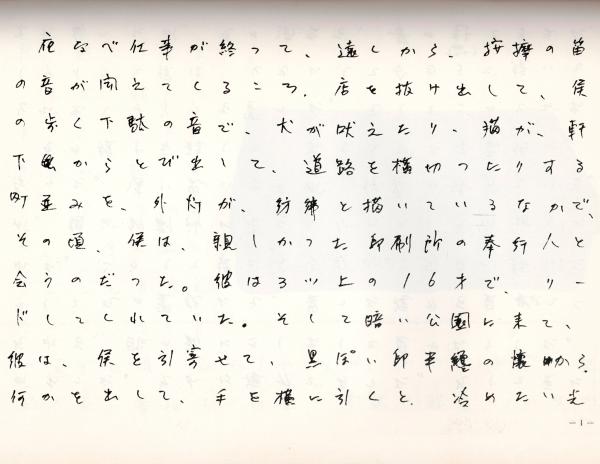 夜なべ仕事が終って、遠くから、按摩の笛
の音が聞えてくるころ、店を抜け出して、僕
の歩く下駄の音で、犬が吠えたり、猫が、軒
下からとび出して、道路を横切ったりする
町並みを、外灯が、彷彿と描いているなかで、
その頃、僕は、親しかった印刷所の奉行人と
会うのだった。彼は3ッ上の16才で、リー
ドしてくれていた。そして暗い公園に来て、
彼は、僕を引寄せて、黒ぽい印半纏の懐から、
何かを出して、手を横に引くと、冷めたい光
-1-